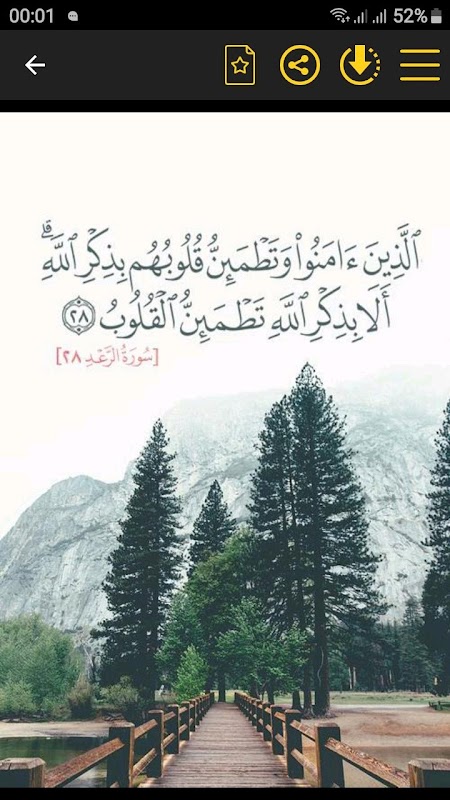 00:01
52%
ٱلَّذِينَ ءَامَنُوا۟ وَتَطْمَئِنُّ قُلُوبُهُم بِذِكْرِ ٱللَّهِ ۗ
أَلَا بِذِكْرِ ٱللَّهِ تَطْمَئِنُّ ٱلْقُلُوبُ ٢٨
[سُورَةُ الرَّعْدِ ٢٨]